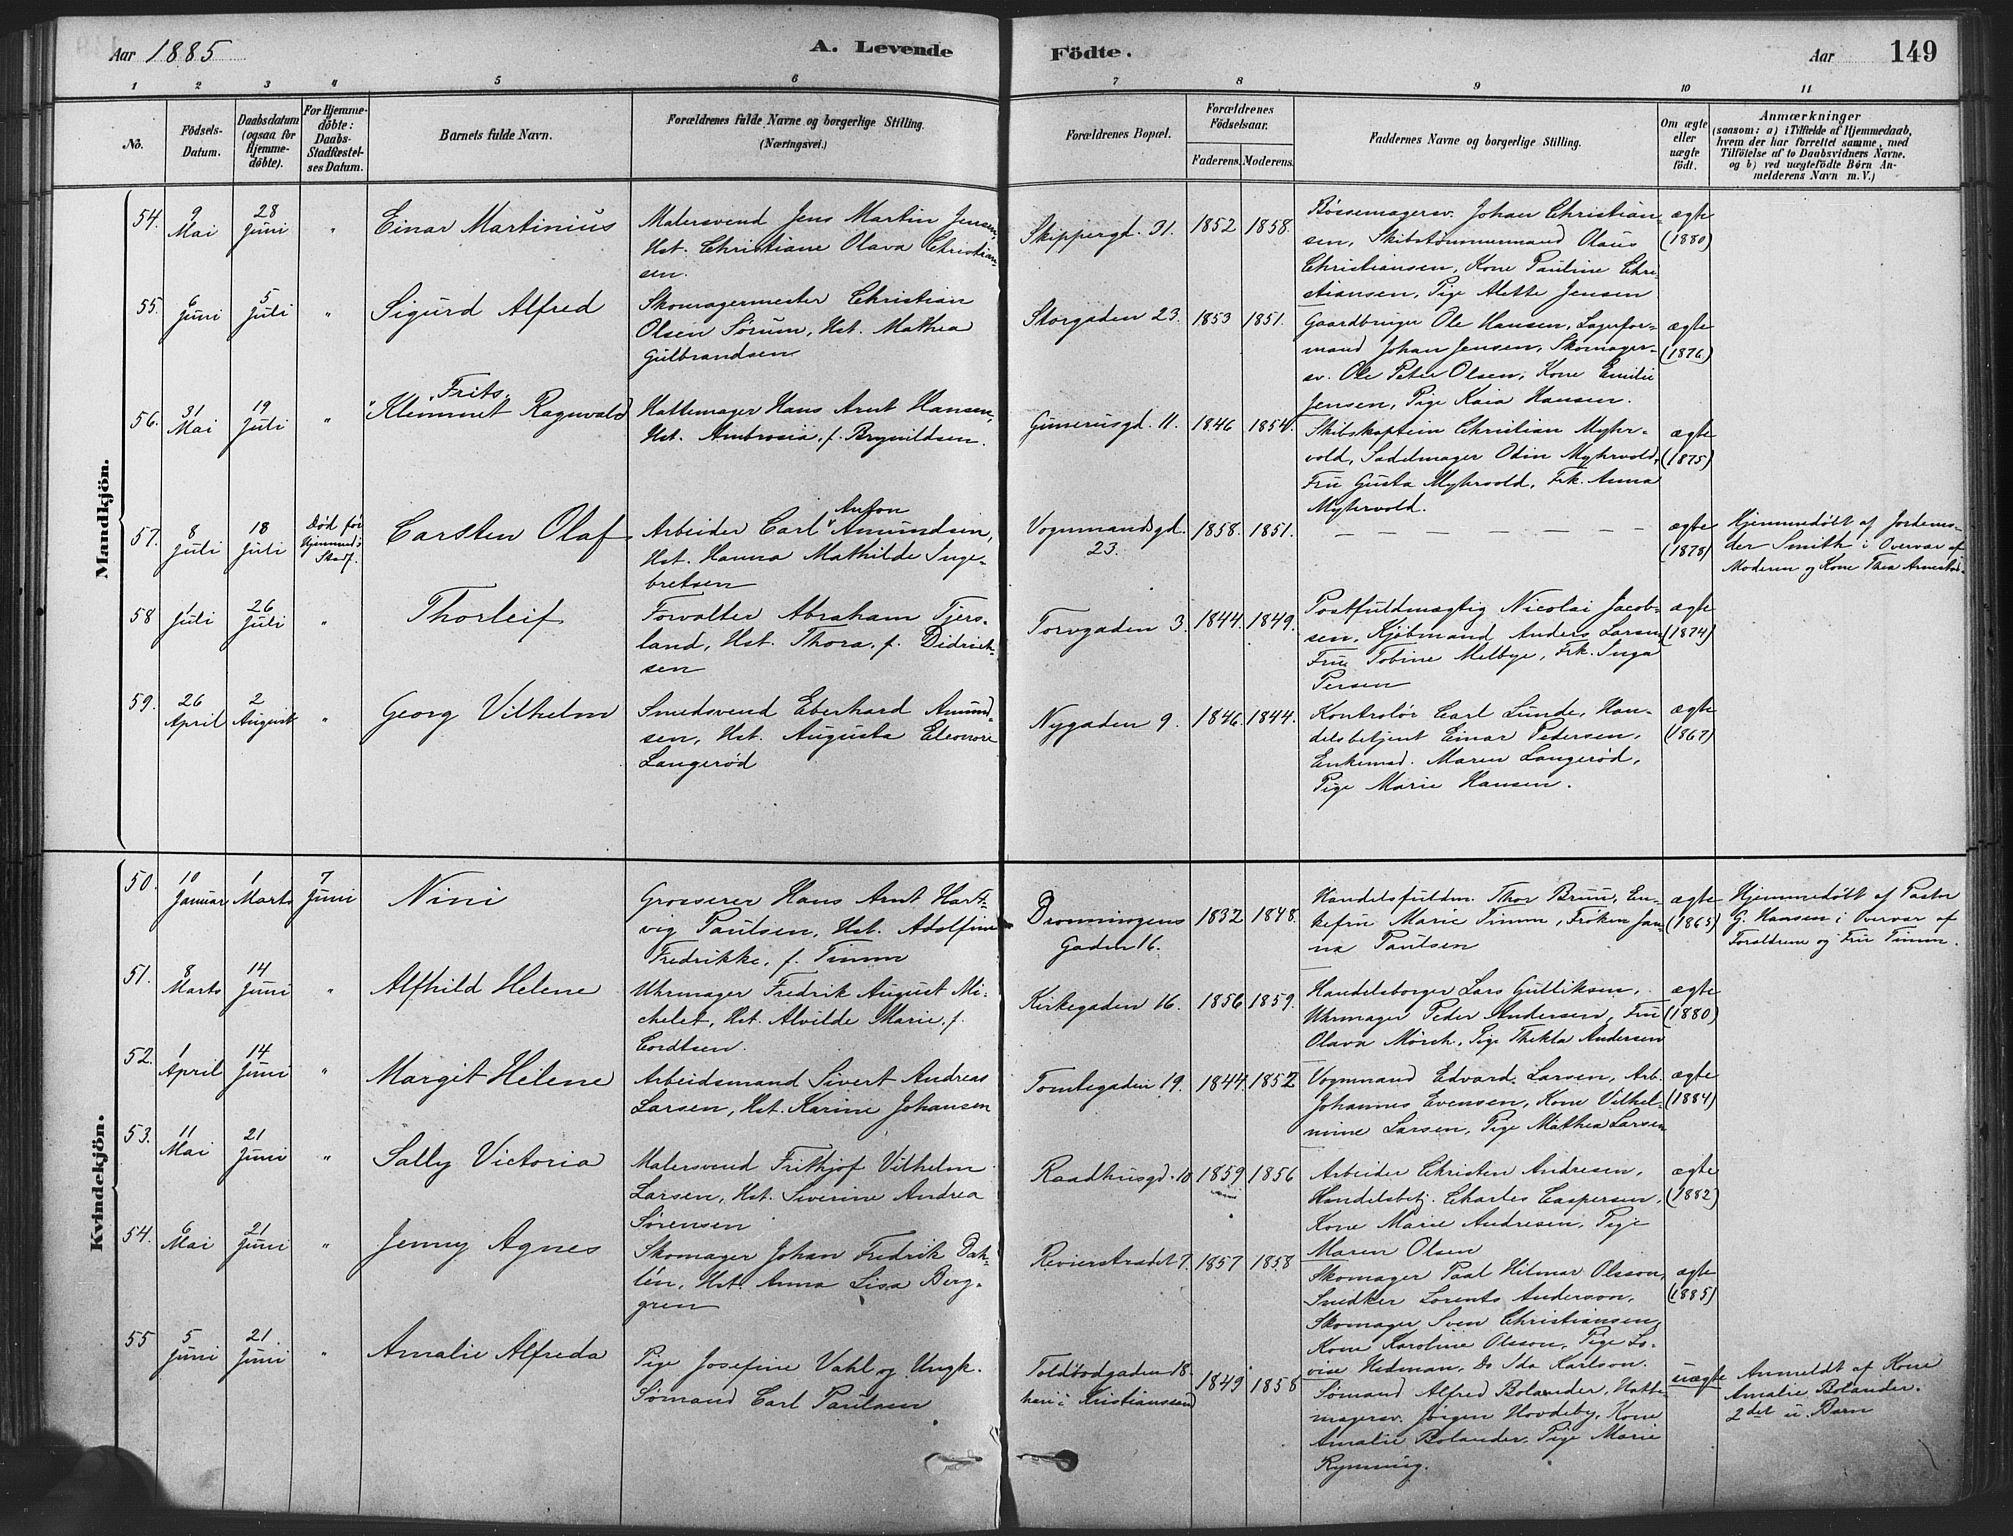 Aar 1885
A. Levende Födte.
Aar 149
1 2 3 4 5 6 7 8 9 10 11
No.
Födsels-Datum.
Daabsdatum (ogsaa for Hjemme-döbte).
For Hjemme-döbte: Daabs-Stadfæstel-ses Datum.
Barnets fulde Navn.
Forældrenes fulde Navne og borgerlige Stilling.
(Næringsvei.)
Forældrenes Bopæl.
Forældrenes Födselsaar.
Faderens. Moderens.
Faddernes Navne og borgerlige Stilling.
Om ægte eller uægte født.
Anmærkninger
(saasom: a) i Tilfælde af Hjemmedaab,
hvem der har forrettet samme, med
Tilföielse af to Daabsvidners Navne.
og b) ved uægtefödte Börn An-
melderens Navn m. V.)
Mandkjön.
54. 9 Mai 28 Juni " Einar Martinius
Malersvend Jens Martin Jensen,
Hst. Christiane Olava Christian-
sen.
Skippergd. 31. 1852 1858.
Bøssemagersv. Johan Christian-
sen, Skibstømmermand Olaus
Christiansen, Kone Pauline Chri-
stiansen, Pige Alette Jensen
ægte (1880)
55. 6 Juni 5 Juli " Sigurd Alfred
Skomagermester Christian
Olsen Sørum, Hst. Mathea
Gulbrandsen
Storgaden 23. 1853 1851.
Gaardbruger Ole Hansen, Lagerfor-
mand Johan Jensen, Skomager-
sv. Ole Peter Olsen, Kone Emilie
Jensen, Pige Kaia Hansen.
ægte (1876)
56. 31 Mai 19 Juli " Frits Klemmet Ragnvald
Hattemager Hans Arnt Hansen,
Hst. Ambrosia, f. Brynildsen.
Gunerusgd. 11. 1846 1854.
Skibskaptein Christian Myhr-
vold, Sadelmager Odin Myhrvold,
Fru Gusta Myhrvold, Frk. Anna
Myhrvold.
ægte (1875)
57. 8 Juli 18 Juli Død før Hjemmed. Stadf. Carsten Olaf
Arbeider Carl Anton Amundsen,
Hst. Hanna Mathilde Inge-
bretsen
Vognmandsgd. 23. 1858. 1851.
— — — — — — —
ægte (1878)
Hjemmedøbt af Jordemo-
der Smith i Overvær af
Moderen og Kone Thea
58 1 Juli 26 Juli " Thorleif
Forvalter Abraham Tjers-
land, Hst. Thora, f. Didrich-
sen
Torvgaden 3. 1844. 1849.
Postfuldmægtig Nicolai Jacob-
sen, Kjøbmand Anders Larsen
Frue Tobine Melbye, Frk. Inga
Persen
ægte (1874)
59. 26 April 2 August " Georg Vilhelm
Smedsvend Eberhard Amund-
sen, Hst. Augusta Eleonore
Langerød
Nygaden 9. 1846. 1844.
Kontrolør Carl Lunde, Han-
delsbetjent Einar Pedersen,
Enkemad. Maren Langerød,
Pige Marie Hansen.
ægte (1867)
Kvindekjön.
50. 10 Januar 1 Marts 7 Juni Nini
Grosserer Hans Arnt Hart-
vig Paulsen, Hst. Adolfine
Fredrikke, f. Timm
Dronningens Gaden 16. 1832 1848.
Handelsfuldm. Thor Bruu, En-
kefru Marie Timm, Frøken Jan-
na Paulsen
ægte (1865)
Hjemmedøbt af Pastor
G. Hansen i Overvær af
Forældrene og Fru Timm.
51. 8 Marts 14 Juni " Alfhild Helene
Uhrmager Fredrik August Mi-
chelet, Hst. Alvilde Marie, f.
Cordtsen.
Kirkegaden 16. 1856 1859.
Handelsborger Lars Gulliksen,
Uhrmager Peder Andersen, Fru
Olava Mørch, Pige Thekla Andersen
ægte (1880)
52. 1 April 14 Juni " Margit Helene
Arbeidsmand Sivert Andreas
Larsen, Hst. Karine Johansen
Tomtegaden 19. 1844. 1852
Vognmand Edvard Larsen, Arb.
Johannes Evensen, Kone Vilhel-
mine Larsen, Pige Mathea Larsen
ægte (1884)
53. 11 Mai 21 Juni " Sally Victoria
Malersvend Frithjof Vilhelm
Larsen, Hst. Siverine Andrea
Sørensen
Raadhusgd. 10 1859 1856
Arbeider Christen Andresen,
Handelsbetj. Charles Caspersen,
Kone Marie Andresen, Pige
Maren Olsen
ægte (1882)
54. 6 Mai 21 Juni " Jenny Agnes
Skomager Johan Fredrik Dah-
lén, Hst. Anna Lisa Berg-
gren
Revierstrædet 7. 1857 1858
Skomager Paal Hilmar Olsson,
Snedker Lorents Anderson,
Skomager Sven Christiansen,
Kone Karoline Olsson, Pige Lo-
vise Hedman, Do Ida Karlson.
ægte (1885)
55 5 Juni 21 Juni " Amalie Alfreda
Pige Josefine Vahl og Ungk.
Sømand Carl Paulsen
Toldbodgaden 18.
han i Kristianssand 1849 1858
Sømand Alfred Bolander, Hatte-
magersv. Jørgen Hovdeby, Kone
Amalie Bolander, Pige Marie
Rynning.
uægte
Anmeldt af Kone
Amalie Bolander.
2det u. Barn